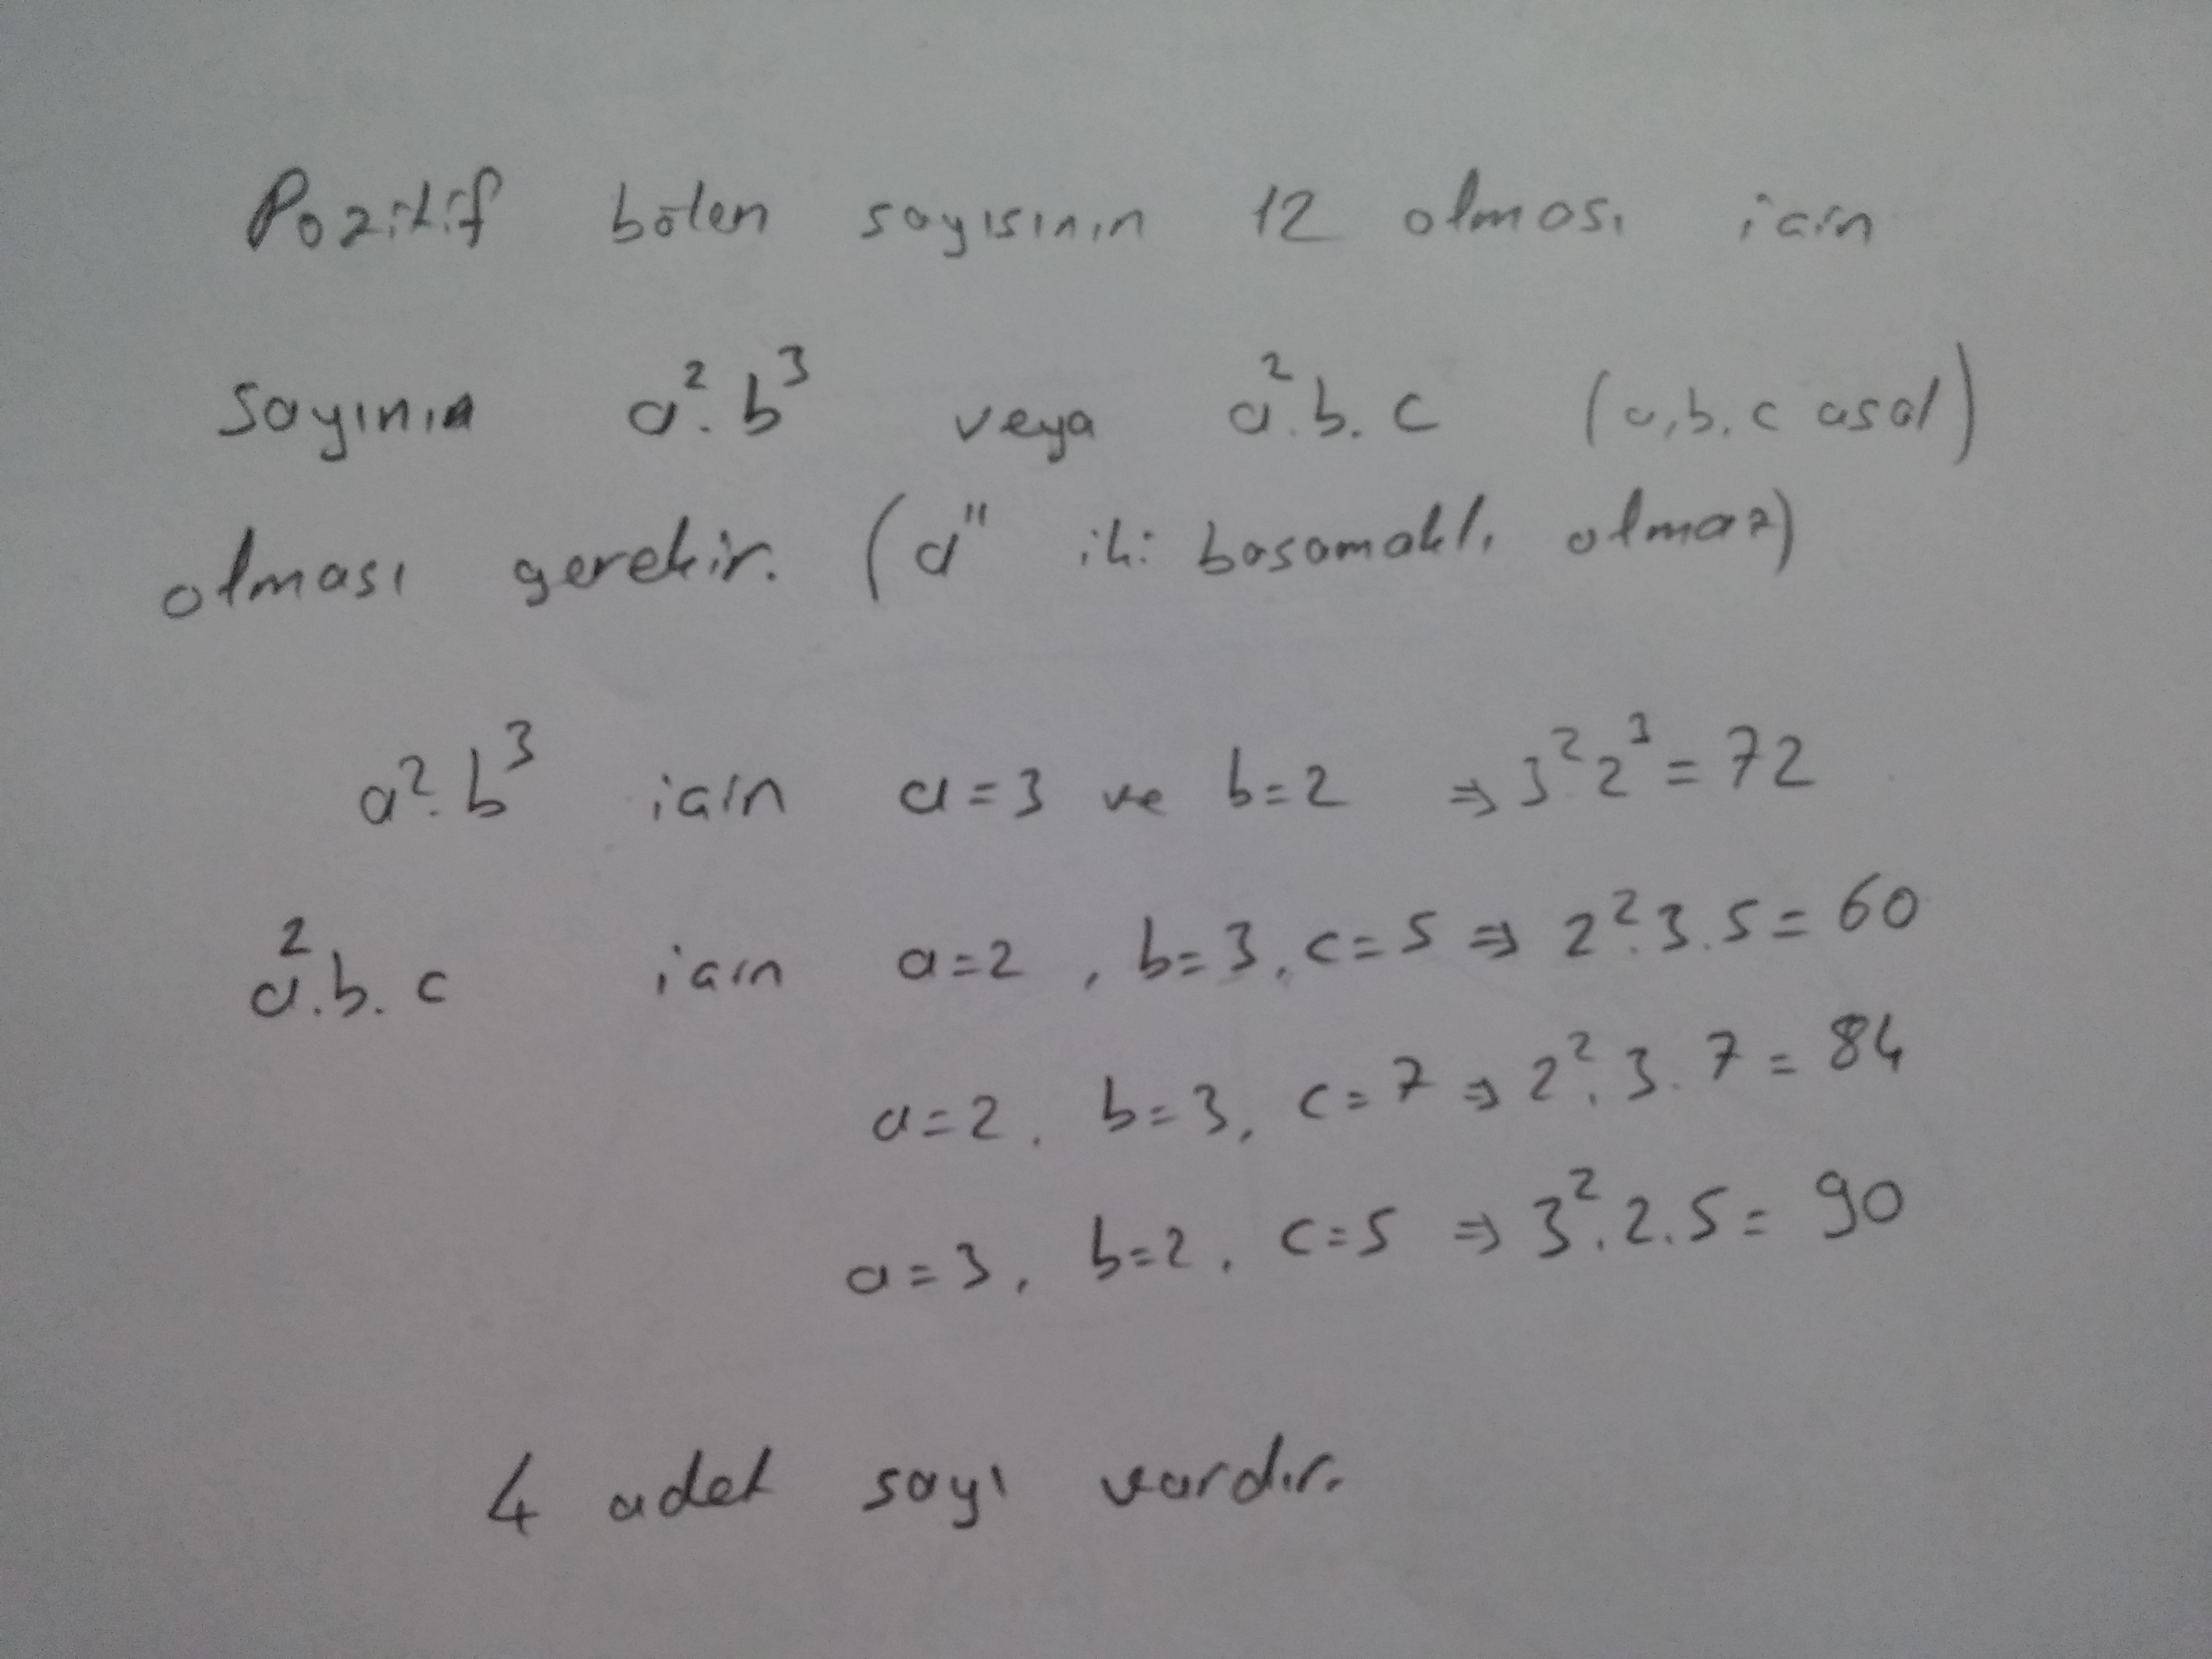 Pozitif bölen sayısının 12 olması için
sayının a².b³ veya a².b.c (a,b,c asal)
olması gerekir. (a¹¹ iki basamaklı olmaz)
a².b³ için a=3 ve b=2 ⇒ 3².2³ = 72
a².b.c için a=2, b=3, c=5 ⇒ 2².3.5 = 60
a=2, b=3, c=7 ⇒ 2².3.7 = 84
a=3, b=2, c=5 ⇒ 3².2.5 = 90
4 adet sayı vardır.